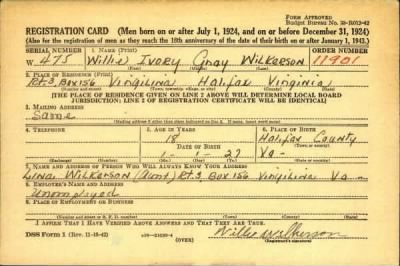 FORM APPROVED
Budget Bureau No. 33-R013-42
REGISTRATION CARD — (Men born on or after July 1, 1924, and on or before December 31, 1924)
(Also for the registration of men as they reach the 18th anniversary of the date of their birth on or after January 1, 1943.)
SERIAL NUMBER 1. NAME (Print) ORDER NUMBER
W 475 Willie Ivory Gray Wilkerson 11901
(First) (Middle) (Last)
2. PLACE OF RESIDENCE (Print)
Rt. 3, Box 156 Virgilina Halifax Virginia
(THE PLACE OF RESIDENCE GIVEN ON LINE 2 ABOVE WILL DETERMINE LOCAL BOARD
JURISDICTION; LINE 2 OF REGISTRATION CERTIFICATE WILL BE IDENTICAL)
3. MAILING ADDRESS
Same
4. TELEPHONE 5. AGE IN YEARS 6. PLACE OF BIRTH
18 Halifax County
DATE OF BIRTH (Town or county)
1 - 1 - 27 Va -
(Exchange) (Number) (Mo.) (Day) (Yr.) (State or country)
7. NAME AND ADDRESS OF PERSON WHO WILL ALWAYS KNOW YOUR ADDRESS
Lina Wilkerson (Aunt) Rt. 3, Box 156 Virgilina Va -
8. EMPLOYER'S NAME AND ADDRESS
Unemployed
9. PLACE OF EMPLOYMENT OR BUSINESS
I AFFIRM THAT I HAVE VERIFIED ABOVE ANSWERS AND THAT THEY ARE TRUE.
DSS Form 1 (Rev. 11-16-42) (OVER) Willie Wilkerson
(Registrant's signature)